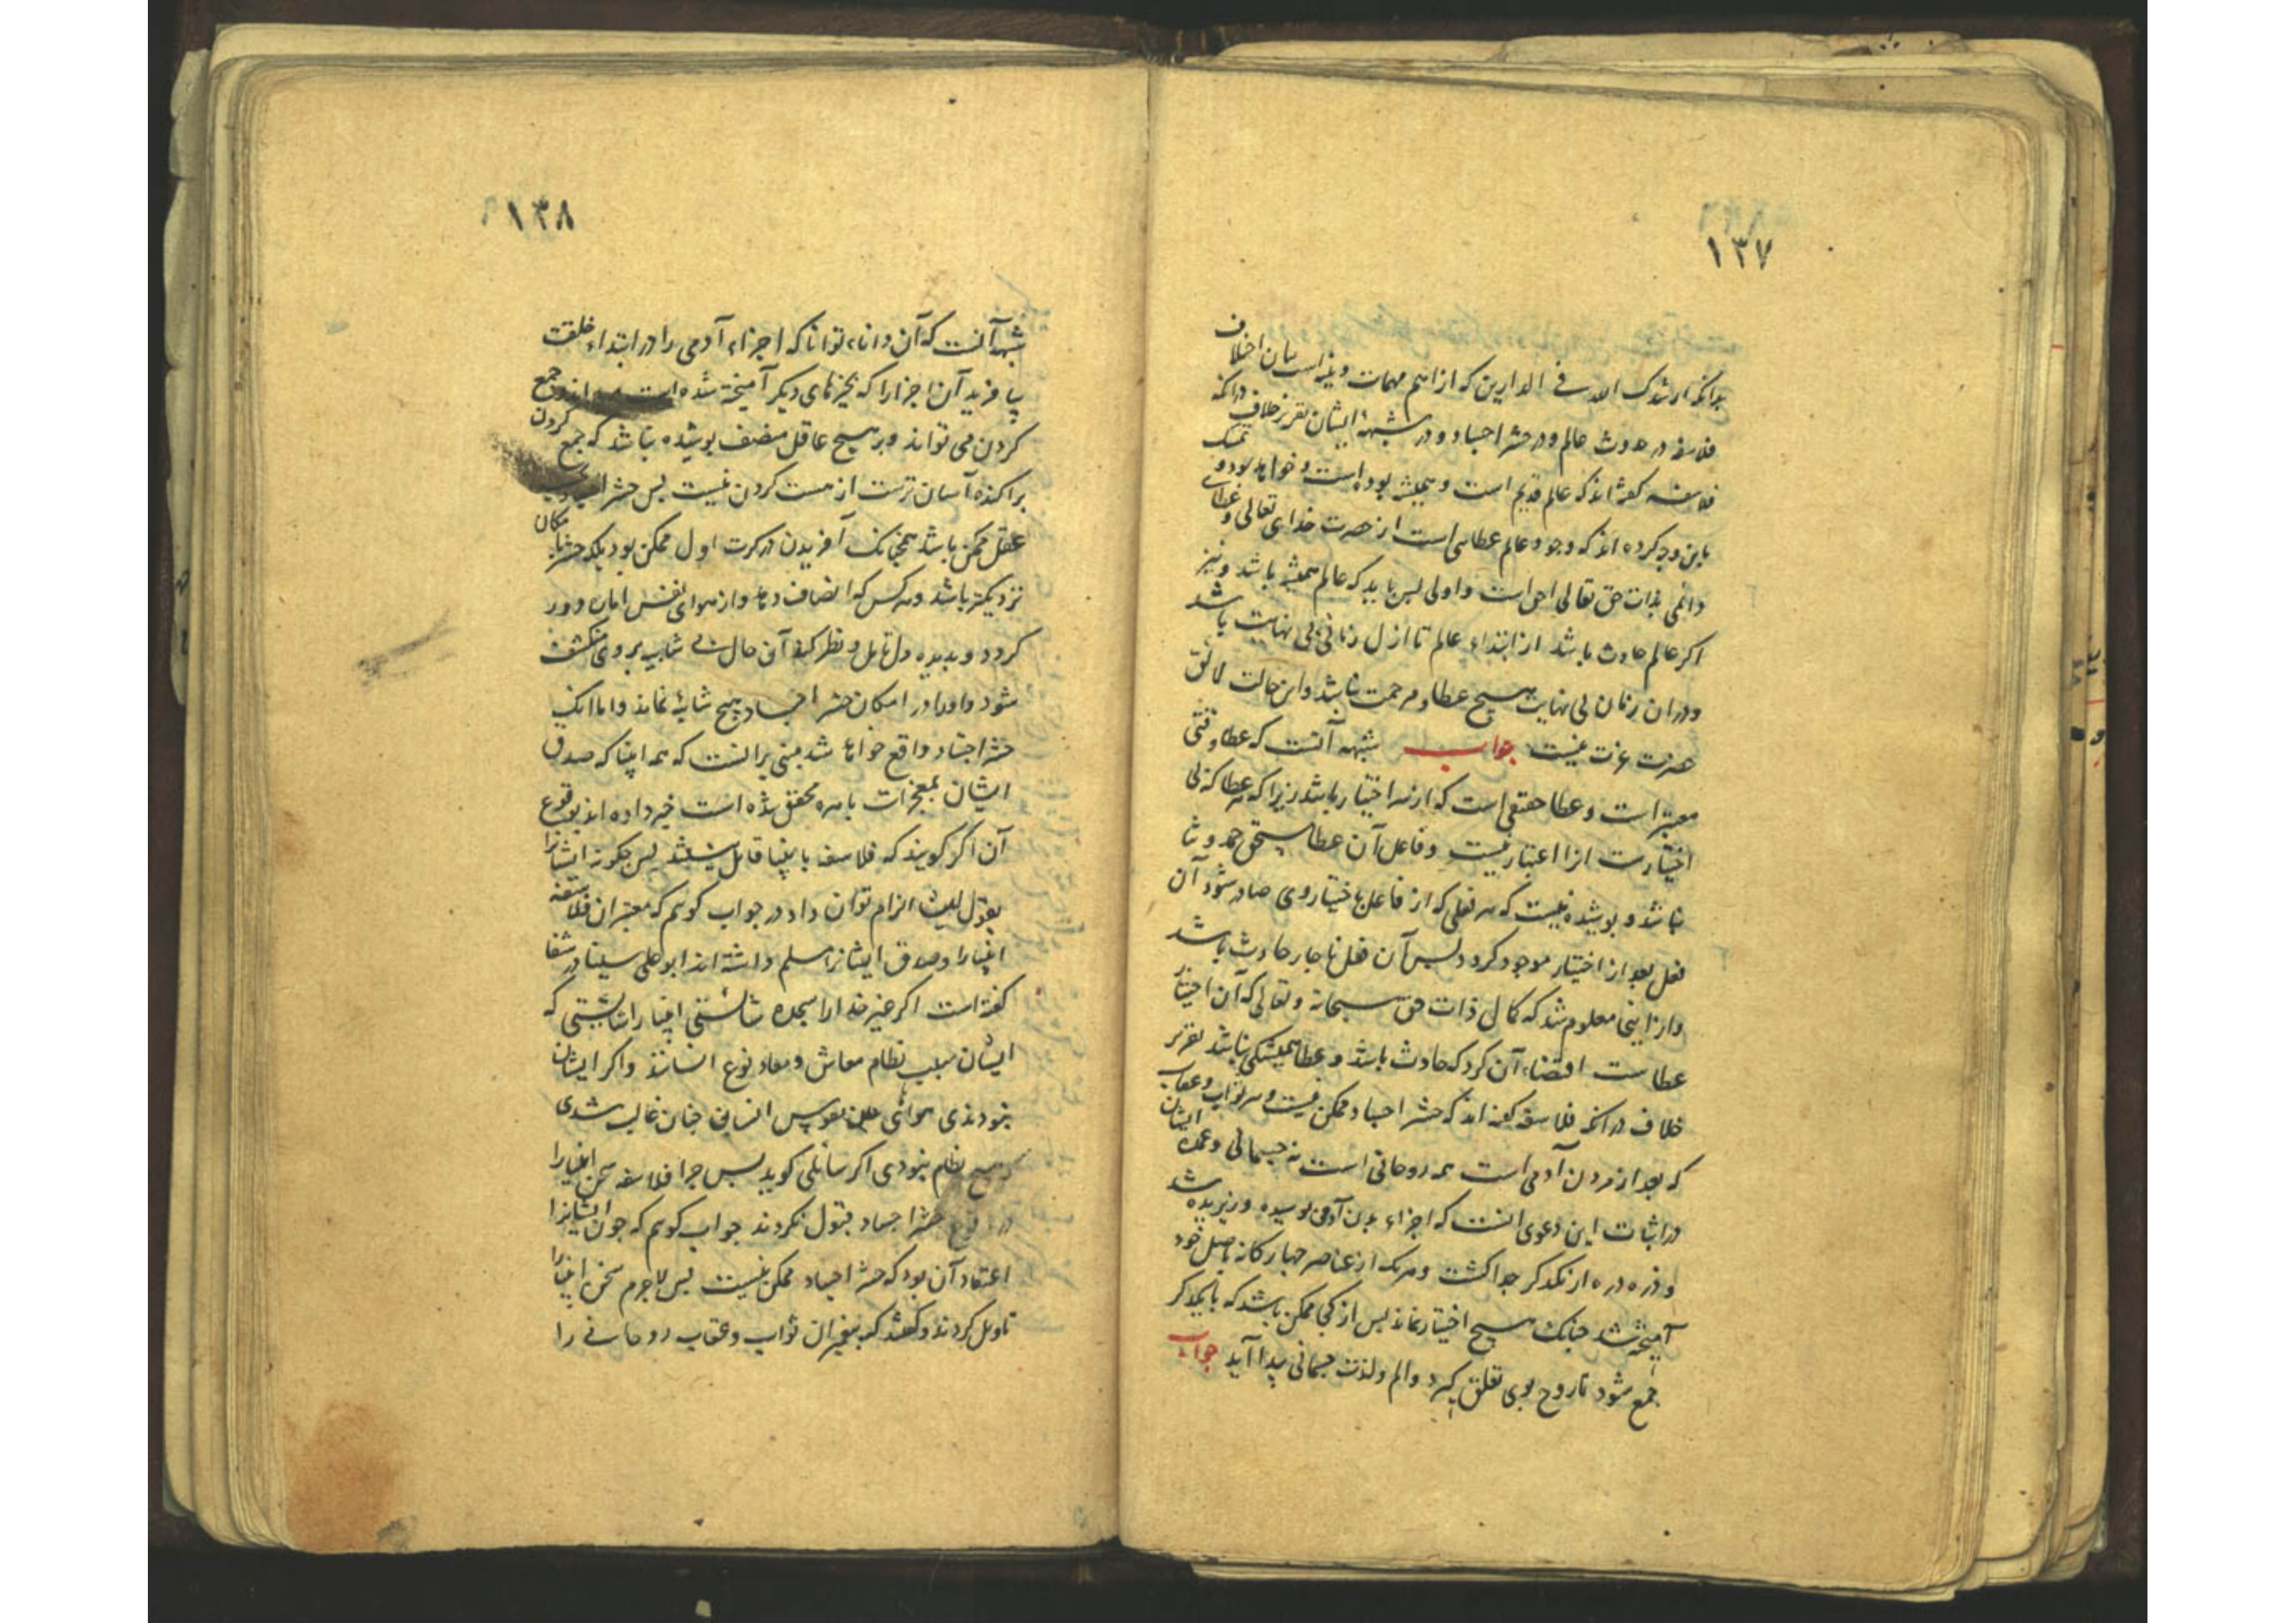 ١٣٧
بدانکه ارشدک الله فی الدارین که از اهم مهمات دینیه است بیان اختلاف
فلاسفه در حدوث عالم و در حشر اجساد و در شبهه ایشان تقریر خلاف در آنکه
فلاسفه گفته اند که عالم قدیم است و همیشه بوده است و خواهد بود و تمسک
باین وجه کرده اند که وجود عالم عطایی است از حضرت خدای تعالی و عطای
دائمی بذات حق تعالی احق است و اولی پس باید که عالم همیشه باشد و نیز
اکر عالم حادث باشد از ابتداء عالم تا ازل زمانی بی نهایت باشد
و در ان زمان بی نهایت هیچ عطا و مرحمت نباشد و این حالت لائق
حضرت عزت نیست جواب شبهه آنست که عطا وقتی
معتبر است و عطا حقیقی است که از سر اختیار باشد زیرا که عطا که بی
اختیارست انرا اعتبار نیست و فاعل آن عطا مستحق حمد و ثنا
نباشد و پوشیده نیست که هر فعلی که از فاعل باختیار وی صادر شود آن
فعل بعد از اختیار موجود کردد پس آن فعل ناچار حادث باشد
و از اینی معلوم شد که کمال ذات حق سبحانه و تعالی که آن اختیار
عطاست اقتضاء آن کرد که حادث باشد و عطا همیشکی نباشد تقریر
خلاف در انکه فلاسفه کفته اند که حشر اجساد ممکن نیست و هر ثواب و عقاب
که بعد از مردن آدمی است همه روحانی است نه جسمانی و عمده ایشان
در اثبات این دعوی انست که اجزاء بدن آدمی پوسیده و ریزیده شد
و ذره ذره از یکدکر جدا کشت و هر یک از عناصر چهارکانه باصل خود
آمیخته شد چنانک هیچ اختیار نماند پس از کجا ممکن باشد که با یکدکر
جمع شود تا روح بوی تعلق کیرد و الم و لذت جسمانی پیدا آید جواب
١٣٨
شبهه آنست که آن داناء توانا که اجزاء آدمی را در ابتداء خلقت
بیافرید آن اجزا را که بچیزهای دیکر آمیخته شده است جمع
کردن می تواند و بر هیچ عاقل منصف پوشیده نباشد که جمع کردن
پراکنده آسان ترست از هست کردن نیست پس حشر
عقل ممکن باشد همچنانک آفریدن در کرت اول ممکن بود بلکه حشر بامکان
نزدیکتر باشد و هر کس که انصاف دهد و از هوای نفس اماره دور
کردد و بدیده دل تامل و نظر کند آن حال بی شایبه بر وی منکشف
شود و او را در امکان حشر اجساد هیچ شایبه نماند و اما انک
حشر اجساد واقع خواهد شد مبنی بر انست که همه انبیا که صدق
ایشان بمعجزات باهره محقق شده است خبر داده اند بوقوع
آن اکر کویند که فلاسفه بانبیا قایل نیستند پس چکونه ایشانرا
بقول انبیا الزام توان داد در جواب کویم که معتبران فلاسفه
انبیا را و صدق ایشانرا مسلم داشته اند ابو علی سینا در شفا
کفته است اکر غیر خدا را سجده شایستی انبیا را شایستی که
ایشان سبب نظام معاش و معاد نوع انسانند و اکر ایشان
نبودندی هوائی نفوس انسانی چنان غالب شدی
که هیچ نظام نبودی اکر سائلی کوید پس چرا فلاسفه سخن انبیا را
در وقوع حشر اجساد قبول نکردند جواب کویم که چون ایشانرا
اعتقاد آن بود که حشر اجساد ممکن نیست پس لاجرم سخن انبیا را
تاویل کردند و کفتند که پیغمبران ثواب و عقاب روحانی را